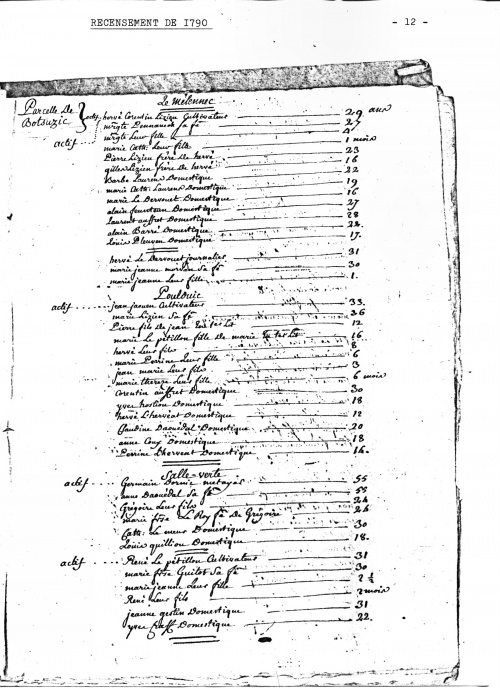 RECENSEMENT DE 1790 - 12 -
Le Mélennec
Parcelle De
Botsuzic
actif hervé Corentin Lizien Cultivateur 29 ans
mrgte Pennanech sa fe 27
mrgte Leur fille 4
actif marie Cath. Leur fille 1 mois
Pierre Lizien frère De hervé 23
gilles Lizien frère De hervé 16
Barbe Laurens Domestique 22
marie Cath. Laurens Domestique 19
marie Le Dervouet Domestique 16
alain Domestique 27
Laurent auffret Domestique 28
alain Barré Domestique 22
Louis Pleuven Domestique 17
hervé Le Dervouet journalier 31
marie jeanne morvan sa fe 30
marie jeanne Leur fille 1
Poulduic
actif Jean jaouen Cultivateur 33
marie Lizien sa fe 36
Pierre fils de jean du 1er Lit 12
marie Le pétillon fille de marie du 1er Lit 16
hervé Leur fils 8
marie Perrine Leur fille 6
jean marie Leur fils 3
marie therese Leur fille 6 mois
Corentin auffret Domestique 30
yves hostiou Domestique 18
hervé L'hervéat Domestique 12
Claudine Daouédal Domestique 20
anne Coux Domestique 18
Perrine L'herveat Domestique 14
Salle-verte
actif Germain Dornic métayer 55
anne Daouédal sa fe 55
Grégoire Leur fils 24
marie frse Le Roy fe De Grégoire 24
Cath. Le meur Domestique 30
Louis quillien Domestique 18
actif René Le pétillon Cultivateur 31
marie frse Guilot sa fe 30
marie jeanne Leur fille 2 ½
René Leur fils 2 mois
jeanne gestin Domestique 31
yves Domestique 22